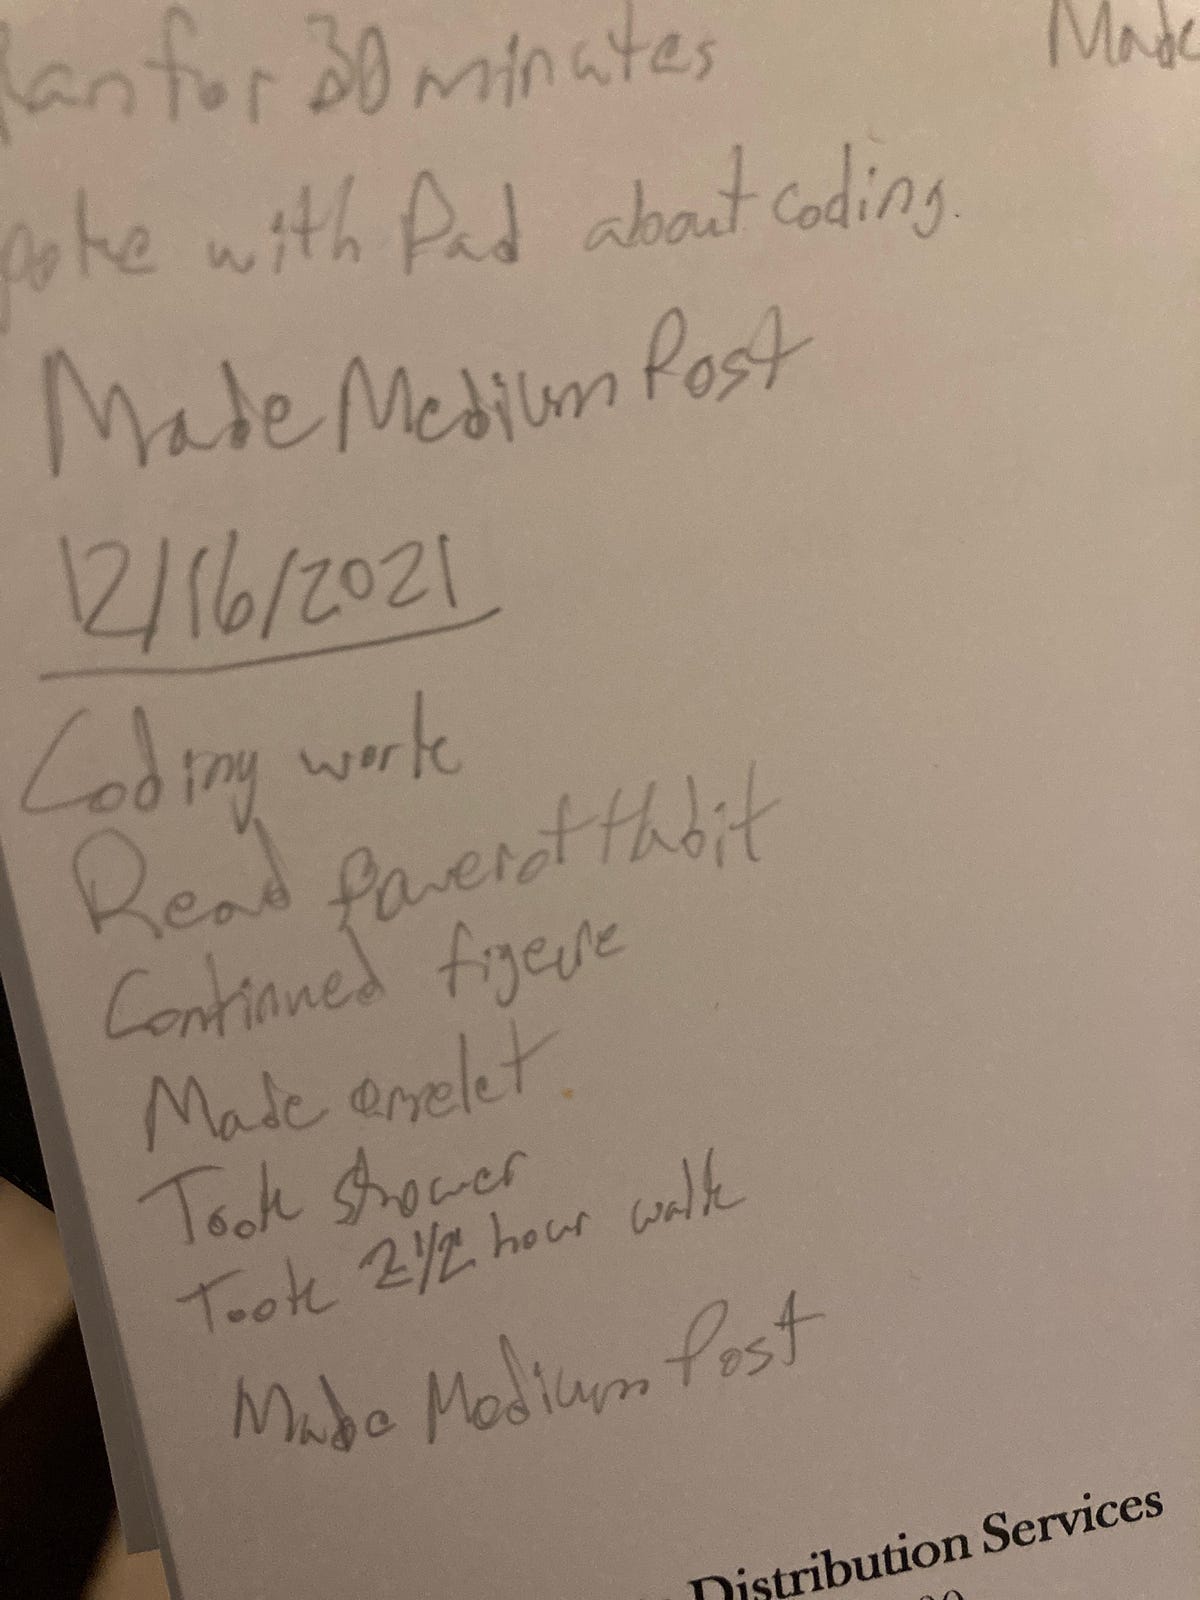 Ran for 30 minutes
Made
poke with Dad about coding.
Made Medium Post
12/16/2021
Coding work
Read Power of Habit
Continued figure
Made omelet
Took shower
Took 2 1/2 hour walk
Made Medium Post
Distribution Services